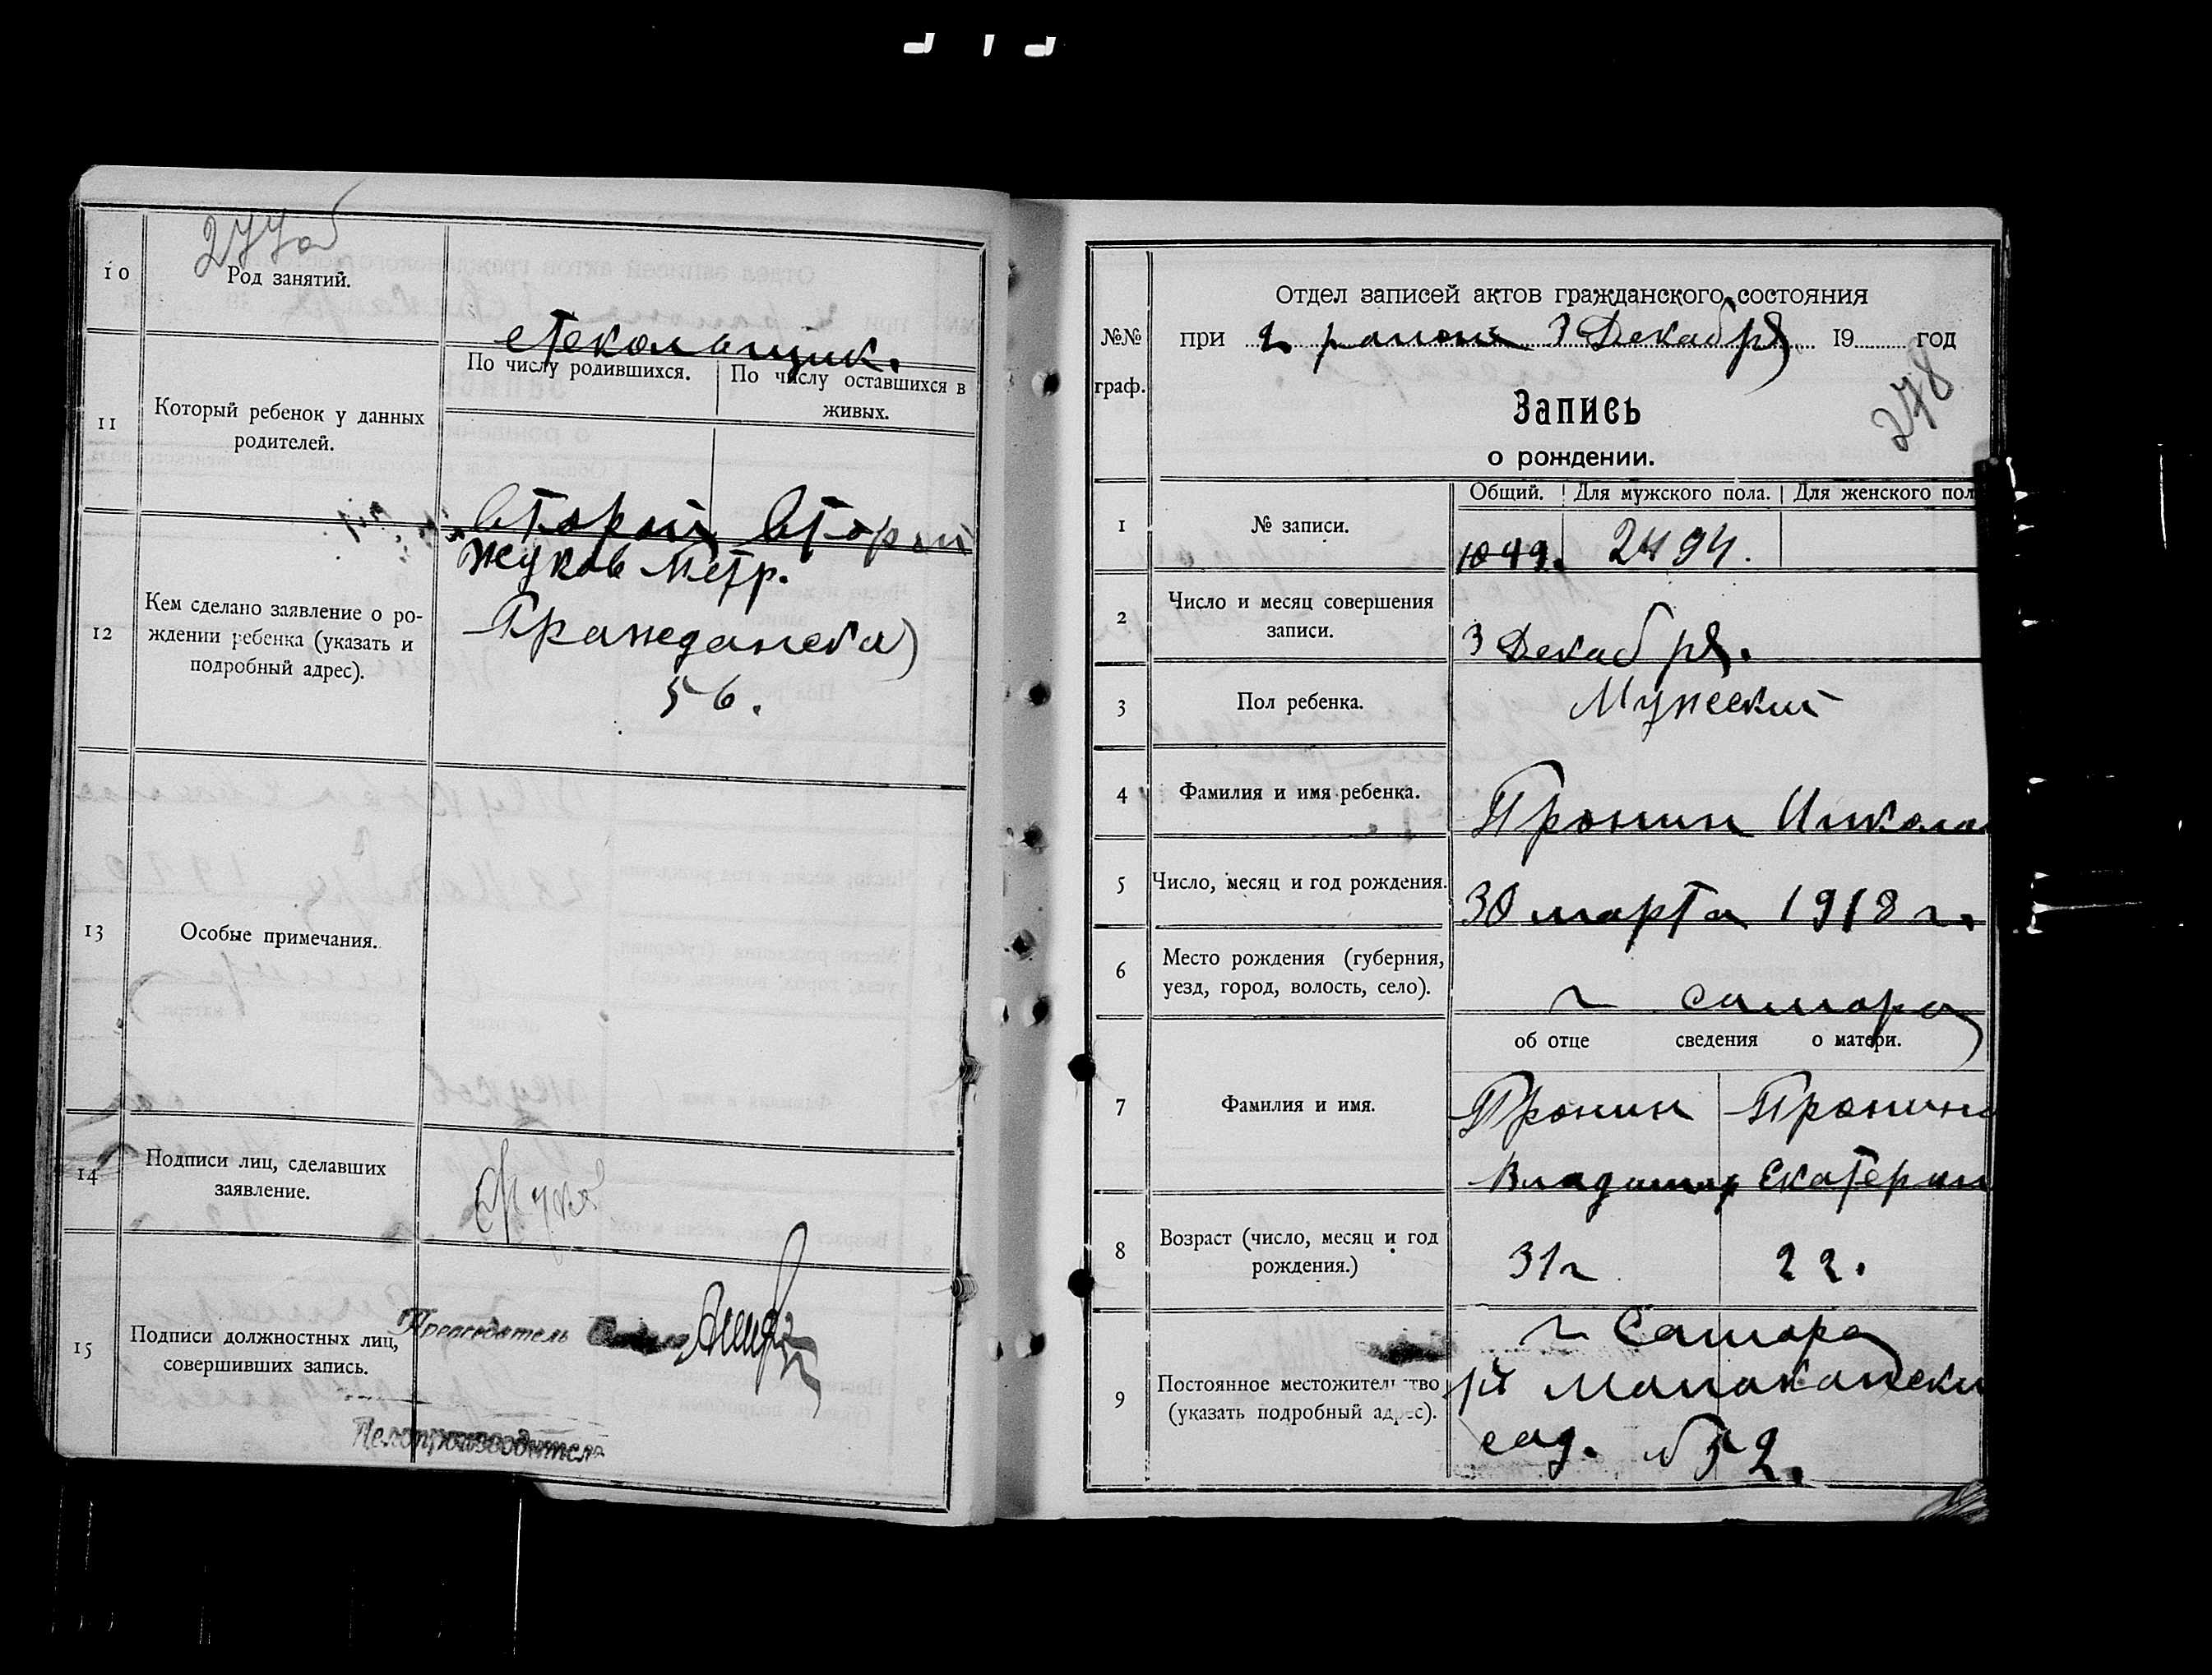 277об
10
Род занятий.
стекольщик.
11
Который ребенок у данных
родителей.
По числу родившихся.
По числу оставшихся в
живых.
второй второй
12
Кем сделано заявление о ро-
ждении ребенка (указать и
подробный адрес).
Жуков Петр.
Гражданская
56.
13
Особые примечания.
14
Подписи лиц, сделавших
заявление.
15
Подписи должностных лиц,
совершивших запись.
Председатель
Делопроизводитель
Отдел записей актов гражданского состояния
№№
граф.
при 2 районе 3 Декабря 19 год
278
Запись
о рождении.
Общий. Для мужского пола. Для женского пол
1
№ записи.
2494.
2
Число и месяц совершения
записи.
3 Декабря.
3
Пол ребенка.
Мужеский
4
Фамилия и имя ребенка.
Пронин Никола
5
Число, месяц и год рождения.
30 марта 1918 г.
6
Место рождения (губерния,
уезд, город, волость, село).
г Самара
об отце сведения о матери.
7
Фамилия и имя.
Пронин Пронина
Владимир Екатерин
8
Возраст (число, месяц и год
рождения.)
31г 22.
9
Постоянное местожительство
(указать подробный адрес).
г Самара
сад. № 52.